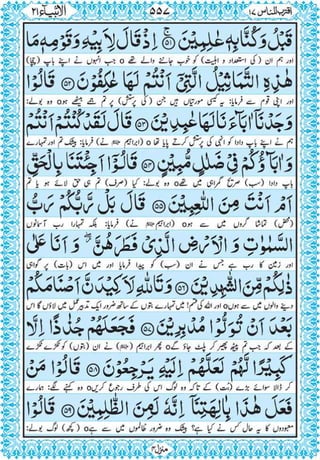 اقترب للناس ۱۷ ۵۵۷ الانبیآء ۲۱
قَبْلُ وَ كُنَّا بِهٖ عٰلِمِیْنَ ۵۱ اِذْ قَالَ لِاَبِیْهِ وَ قَوْمِهٖ مَا
اور ہم ان (کی استعداد و اہلیت) کو خوب جاننے والے تھے o جب انہوں نے اپنے باپ (چچا)
هٰذِهِ التَّمَاثِیْلُ الَّتِیْۤ اَنْتُمْ لَهَا عٰكِفُوْنَ ۵۲ قَالُوْا
اور اپنی قوم سے فرمایا: یہ کیسی مورتیاں ہیں جن (کی پرستش) پر تم جمے بیٹھے ہو o وہ بولے:
وَجَدْنَاۤ اٰبَآءَنَا لَهَا عٰبِدِیْنَ ۵۳ قَالَ لَقَدْ كُنْتُمْ اَنْتُمْ
ہم نے اپنے باپ دادا کو انہی کی پرستش کرتے پایا تھا o (ابراہیم نے) فرمایا: بیشک تم اور تمہارے
وَ اٰبَآؤُكُمْ فِیْ ضَلٰلٍ مُّبِیْنٍ ۵۴ قَالُوْۤا اَجِئْتَنَا بِالْحَقِّ
باپ دادا (سب) صریح گمراہی میں تھے o وہ بولے: کیا (صرف) تم ہی حق لائے ہو یا تم
اَمْ اَنْتَ مِنَ اللّٰعِبِیْنَ ۵۵ قَالَ بَلْ رَّبُّكُمْ رَبُّ
(محض) تماشا گروں میں سے ہو o (ابراہیم نے) فرمایا: بلکہ تمہارا رب آسمانوں
السَّمٰوٰتِ وَ الْاَرْضِ الَّذِیْ فَطَرَهُنَّ ۖ وَ اَنَا عَلٰى
اور زمین کا رب ہے جس نے ان (سب) کو پیدا فرمایا اور میں اس (بات) پر گواہی
ذٰلِكُمْ مِّنَ الشّٰهِدِیْنَ ۵۶ وَ تَاللّٰهِ لَاَكِیْدَنَّ اَصْنَامَكُمْ
دینے والوں میں سے ہوں o اور اللہ کی قسم! میں تمہارے بتوں کے ساتھ ضرور ایک تدبیر عمل میں لاؤں گا اس
بَعْدَ اَنْ تُوَلُّوْا مُدْبِرِیْنَ ۵۷ فَجَعَلَهُمْ جُذٰذًا اِلَّا
کے بعد کہ جب تم پیٹھ پھیر کر پلٹ جاؤ گے o پھر ابراہیم نے ان (بتوں) کو ٹکڑے ٹکڑے
كَبِیْرًا لَّهُمْ لَعَلَّهُمْ اِلَیْهِ یَرْجِعُوْنَ ۵۸ قَالُوْا مَنْ
کر ڈالا سوائے بڑے (بُت) کے تاکہ وہ لوگ اس کی طرف رجوع کریں o وہ کہنے لگے: ہمارے
فَعَلَ هٰذَا بِاٰلِهَتِنَاۤ اِنَّهٗ لَمِنَ الظّٰلِمِیْنَ ۵۹ قَالُوْا
معبودوں کا یہ حال کس نے کیا ہے؟ بیشک وہ ضرور ظالموں میں سے ہے o (کچھ) لوگ بولے:
منزل ۴